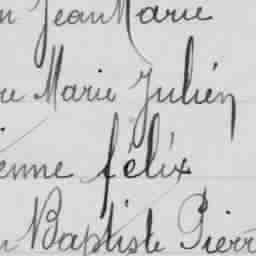 n Jean Marie
re Marie Julien
ienne félix
n Baptiste Pierr